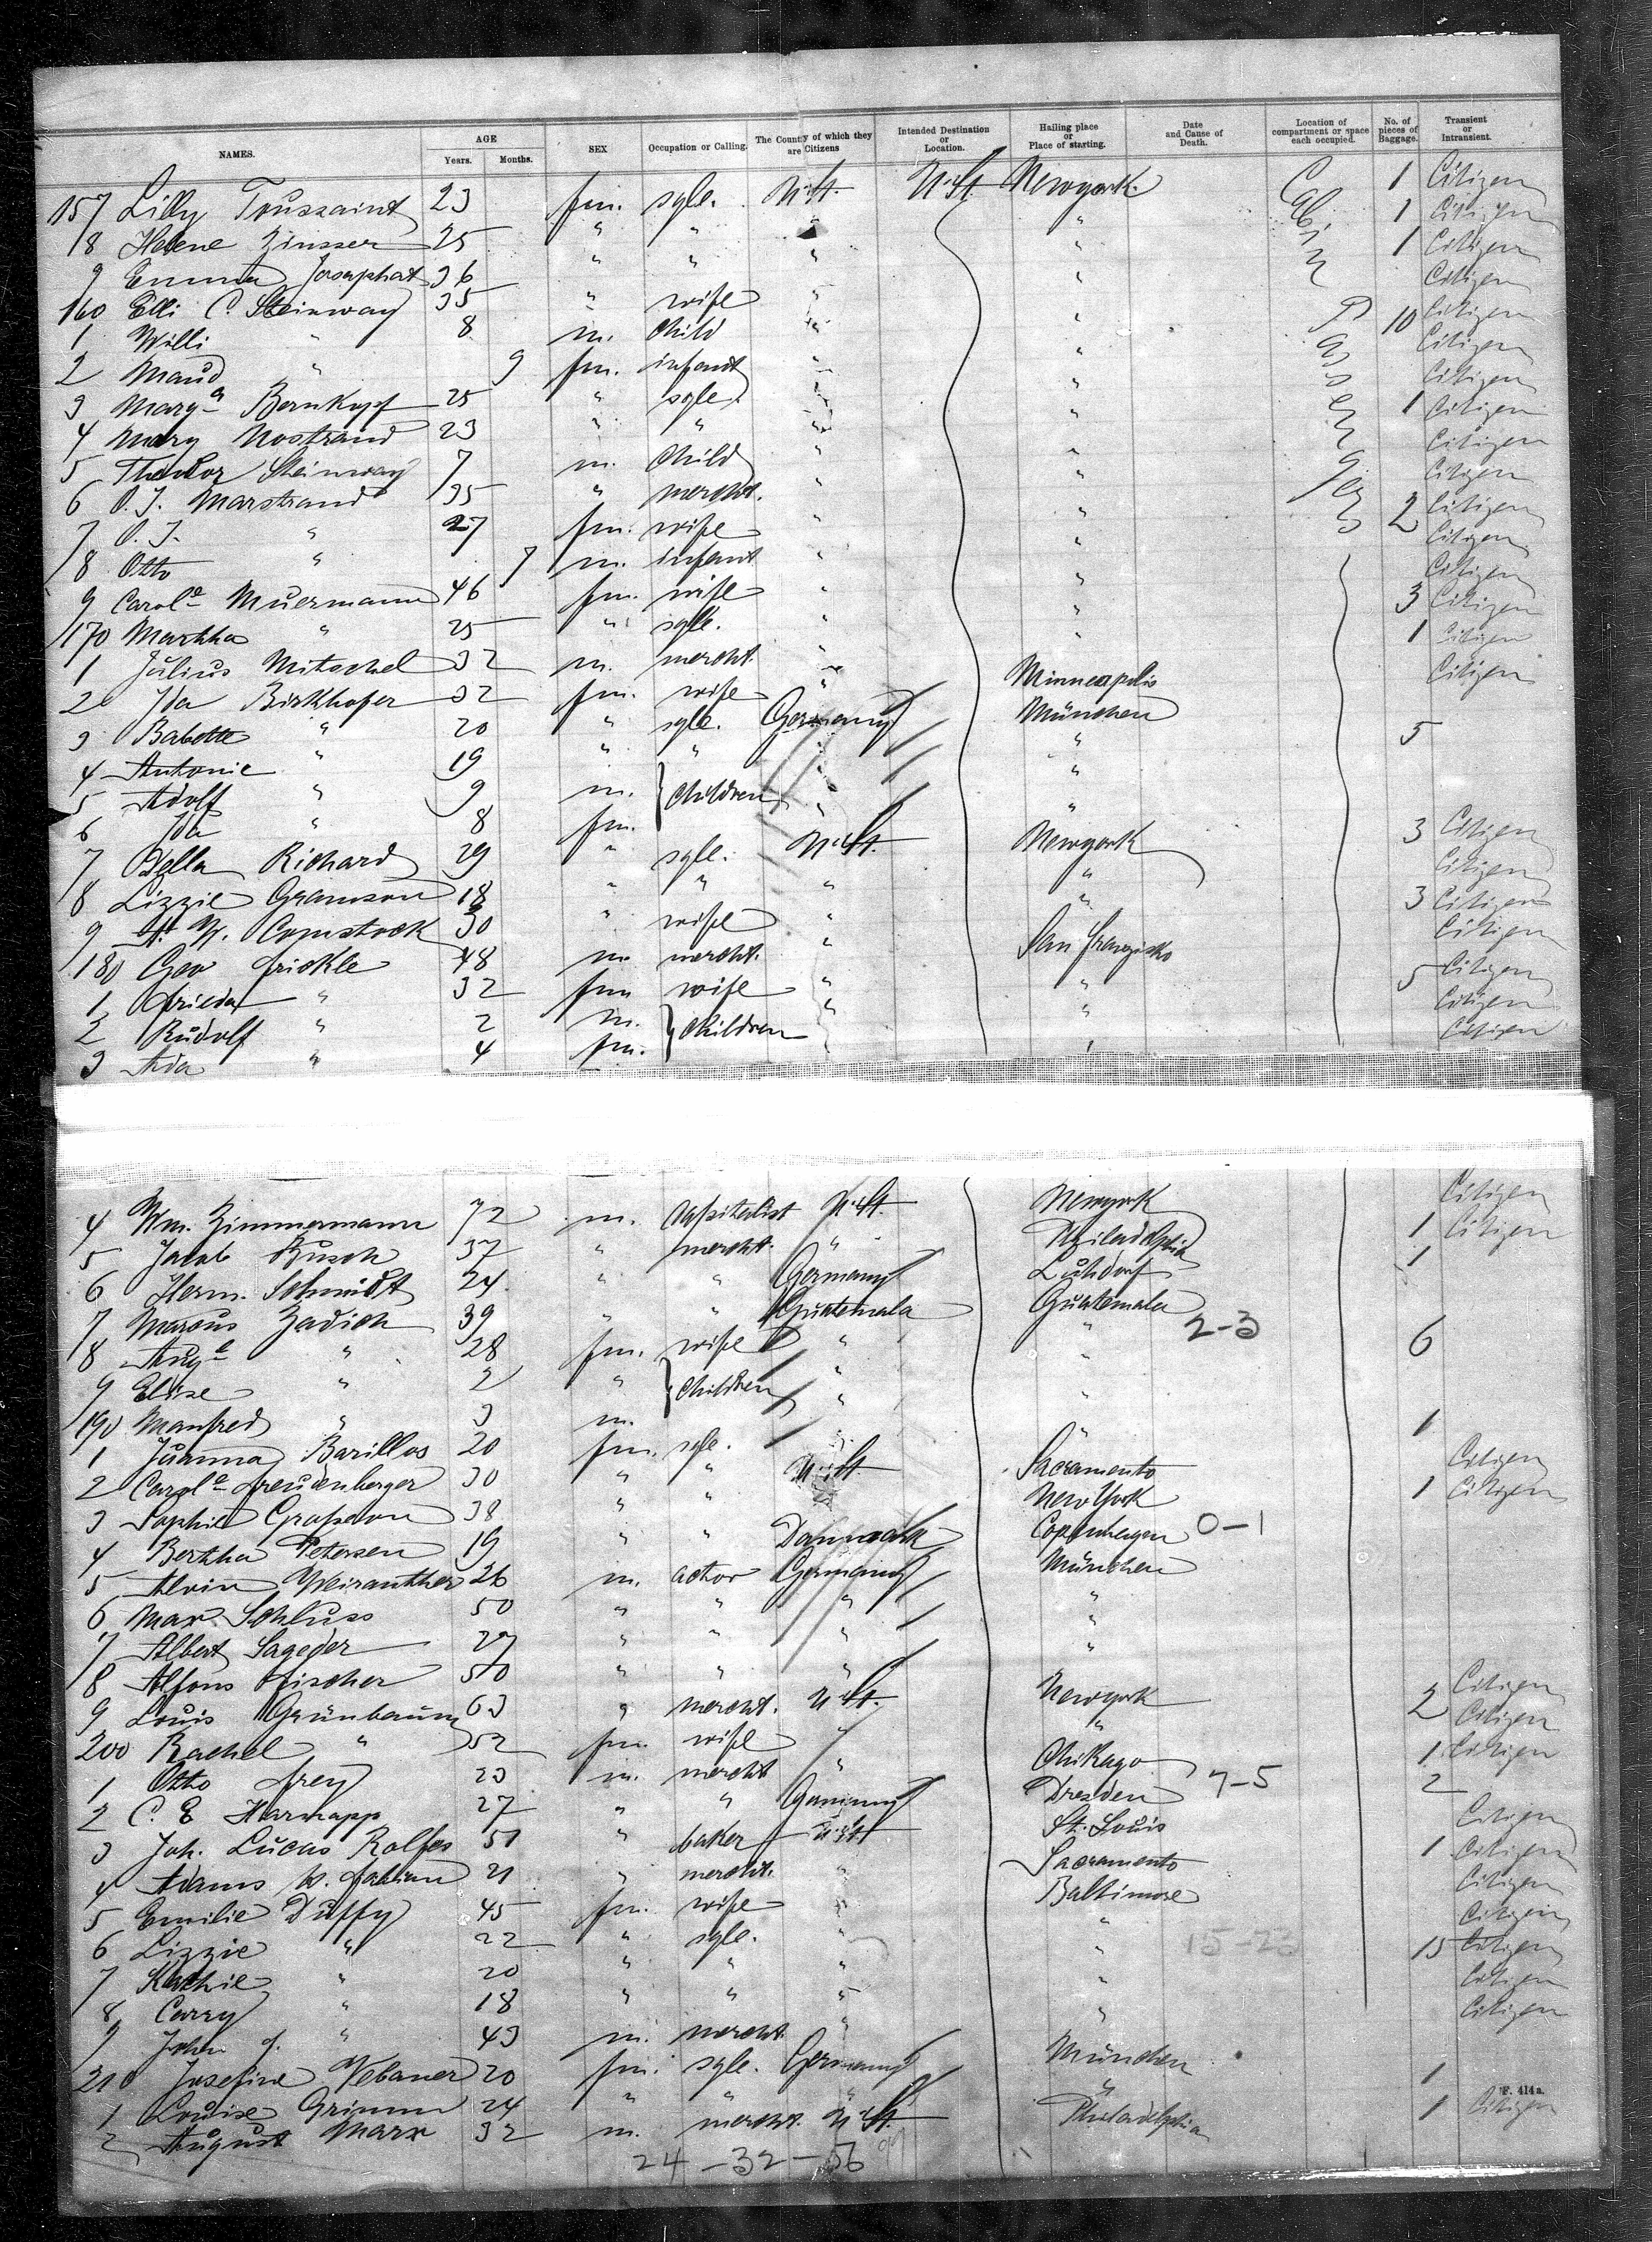 NAMES. AGE Years. Months. SEX Occupation or Calling. The County of which they are Citizens Intended Destination or Location. Hailing place or Place of starting. Date and Cause of Death. Location of compartment or space each occupied. No. of pieces of Baggage. Transient or Intransient.
157 Lilly Toussaint 23 fm. sgle. U.St. U.St. Newyork. Cabin Passengers 1 Citizen
8 Helene Zinsser 25 " " " " 1 Citizen
9 Emma Josaphat 36 " " " " 1 Citizen
160 Elli C. Steinway 35 " wife " " Citizen
1 Willi " 8 m. child " " 10 Citizen
2 Maud " 9 fm. infant " " Citizen
3 Marg.a Bernkopf 25 " sgle. " " Citizen
4 Mary Nostrand 23 " " " " 1 Citizen
5 Theodor Steinway 7 m. Child " " Citizen
6 O. J. Marstrand 35 " mercht. " " Citizen
7 O. J. " 27 fm. wife " " 2 Citizen
8 Otto " 7 m. infant " " Citizen
9 Carol.e Muermann 46 fm. wife " " Citizen
170 Martha " 25 " sgle. " " 3 Citizen
1 Julius Mitschel 32 m. mercht. " " 1 Citizen
2 Ida Birkhofer 32 fm. wife " Minneapolis Citizen
3 Babette " 20 " sgle. Germany München 5
4 Antonie " 19 " " " "
5 Adolf " 9 m. children " "
6 Ida " 8 fm. " "
7 Della Richard 29 " sgle. U.St. Newyork 3 Citizen
8 Lizzie Gramson 18 " " " " Citizen
9 Comstock 30 " wife " " 3 Citizen
180 Geo Frickle 48 m mercht. " San Franzisko Citizen
1 Frieda " 32 fm wife " " 5 Citizen
2 Rudolf " 2 m. children " " Citizen
3 Ada " 4 fm. " Citizen
4 Wm. Zimmermann 72 m. capitalist U.St. Newyork Citizen
5 Jacob Busch 37 " mercht. " Philadelphia 1 Citizen
6 Herm. Schmidt 24 " " Germany Luhdorf 1
7 Marcus Zadich 39 " " Guatemala Guatemala 2-3
8 Aug.e " 28 fm. wife " " 6
9 Elise " 2 " children " "
190 Manfred " 3 m. " "
1 Juanna Barillos 20 fm. sgle. " " 1
2 Carol.e Freudenberger 30 " " U.St. Sacramento Citizen
3 Sophie 38 " " New York 1 Citizen
4 Bertha Petersen 19 " " Danmark Copenhagen 0-1
5 Alvin 26 m. actor Germany München
6 Max Schluss 50 " " " "
7 Albert Sageder 27 " " " "
8 Alfons Fischer 50 " " " "
9 Louis Grünbaum 63 " mercht. U.St. Newyork Citizen
200 Rachel " 52 fm. wife " " 2 Citizen
1 Otto Frey 23 m. mercht " Chikago 1 Citizen
2 C. E Harnapp 27 " " Germany Dresden 7-5 2
3 Joh. Lucas Rolfes 51 " baker U.St St. Louis Citizen
4 Adams W. Fabian 21 " mercht. " Sacramento 1 Citizen
5 Emilie Duffy 45 fm. wife " Baltimore Citizen
6 Lizzie " 22 " sgle. " " Citizen
7 Kathie " 20 " " " " 15 Citizen
8 Carry " 18 " " " " Citizen
9 John J. " 43 m. mercht. " " Citizen
210 Josefine 20 fm. sgle. Germany München
1 Louise Grimm 24 " " " " 1
2 August Marx 32 m. mercht. U.St. Philadelphia 1 Citizen
F. 414a.
24 - 32 - 56